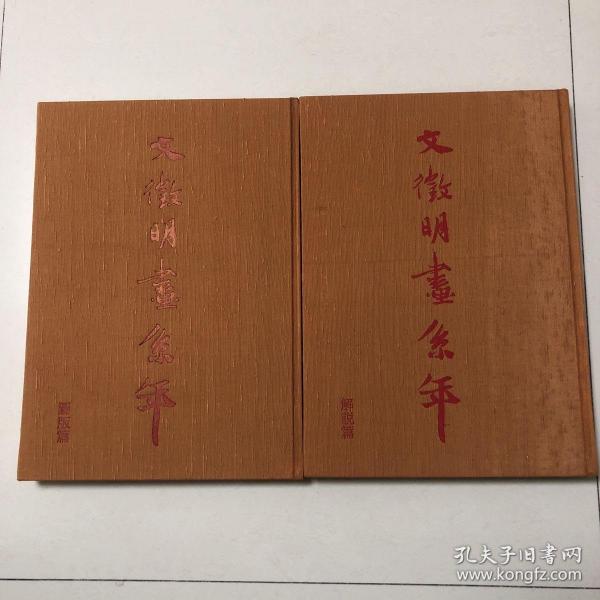 文徵明畫系年
圖版篇
文徵明畫系年
解説篇
孔夫子旧書网
www.kongfz.com